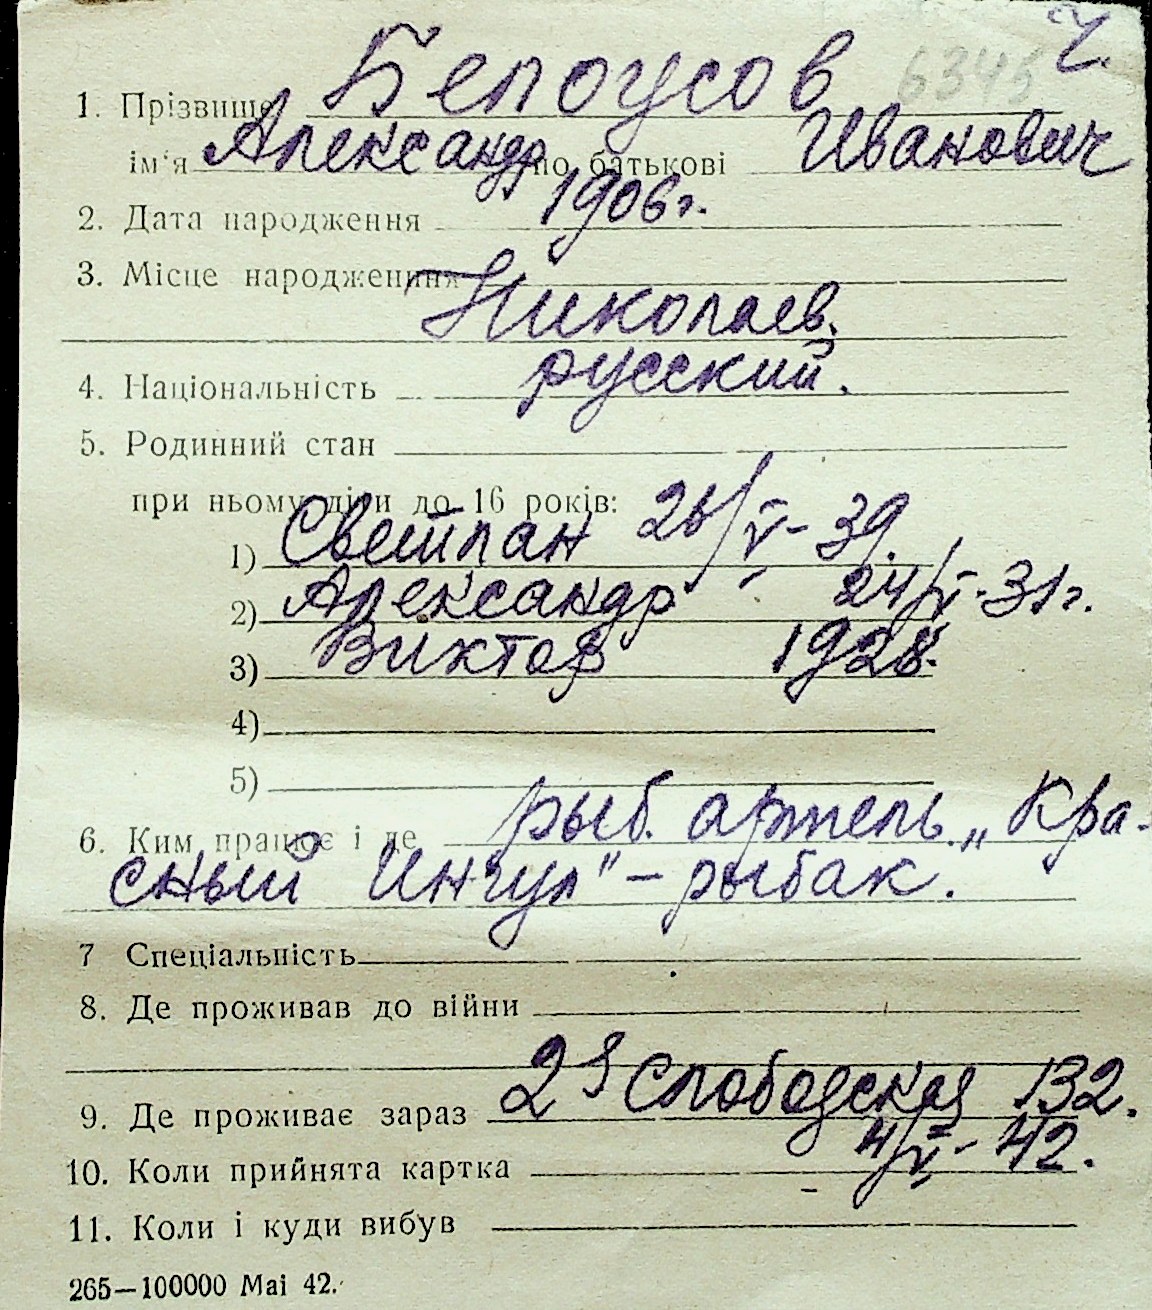 Ч.
6345
1. Прізвище Белоусов
ім'я Александр по батькові Иванович
2. Дата народження 1906 г.
3. Місце народження
Николаев.
4. Національність русский.
5. Родинний стан
при ньому діти до 16 років:
1) Светлан 26/V-39.
2) Александр 24/V-31 г.
3) Виктор 1928.
4)
5)
6. Ким працює і де рыб. артель „Кра-
сный Ингул" – рыбак.
7 Спеціальність
8. Де проживав до війни
9. Де проживає зараз 2я Слободская 132.
10. Коли прийнята картка 4/V-42.
11. Коли і куди вибув
265—100000 Mai 42.